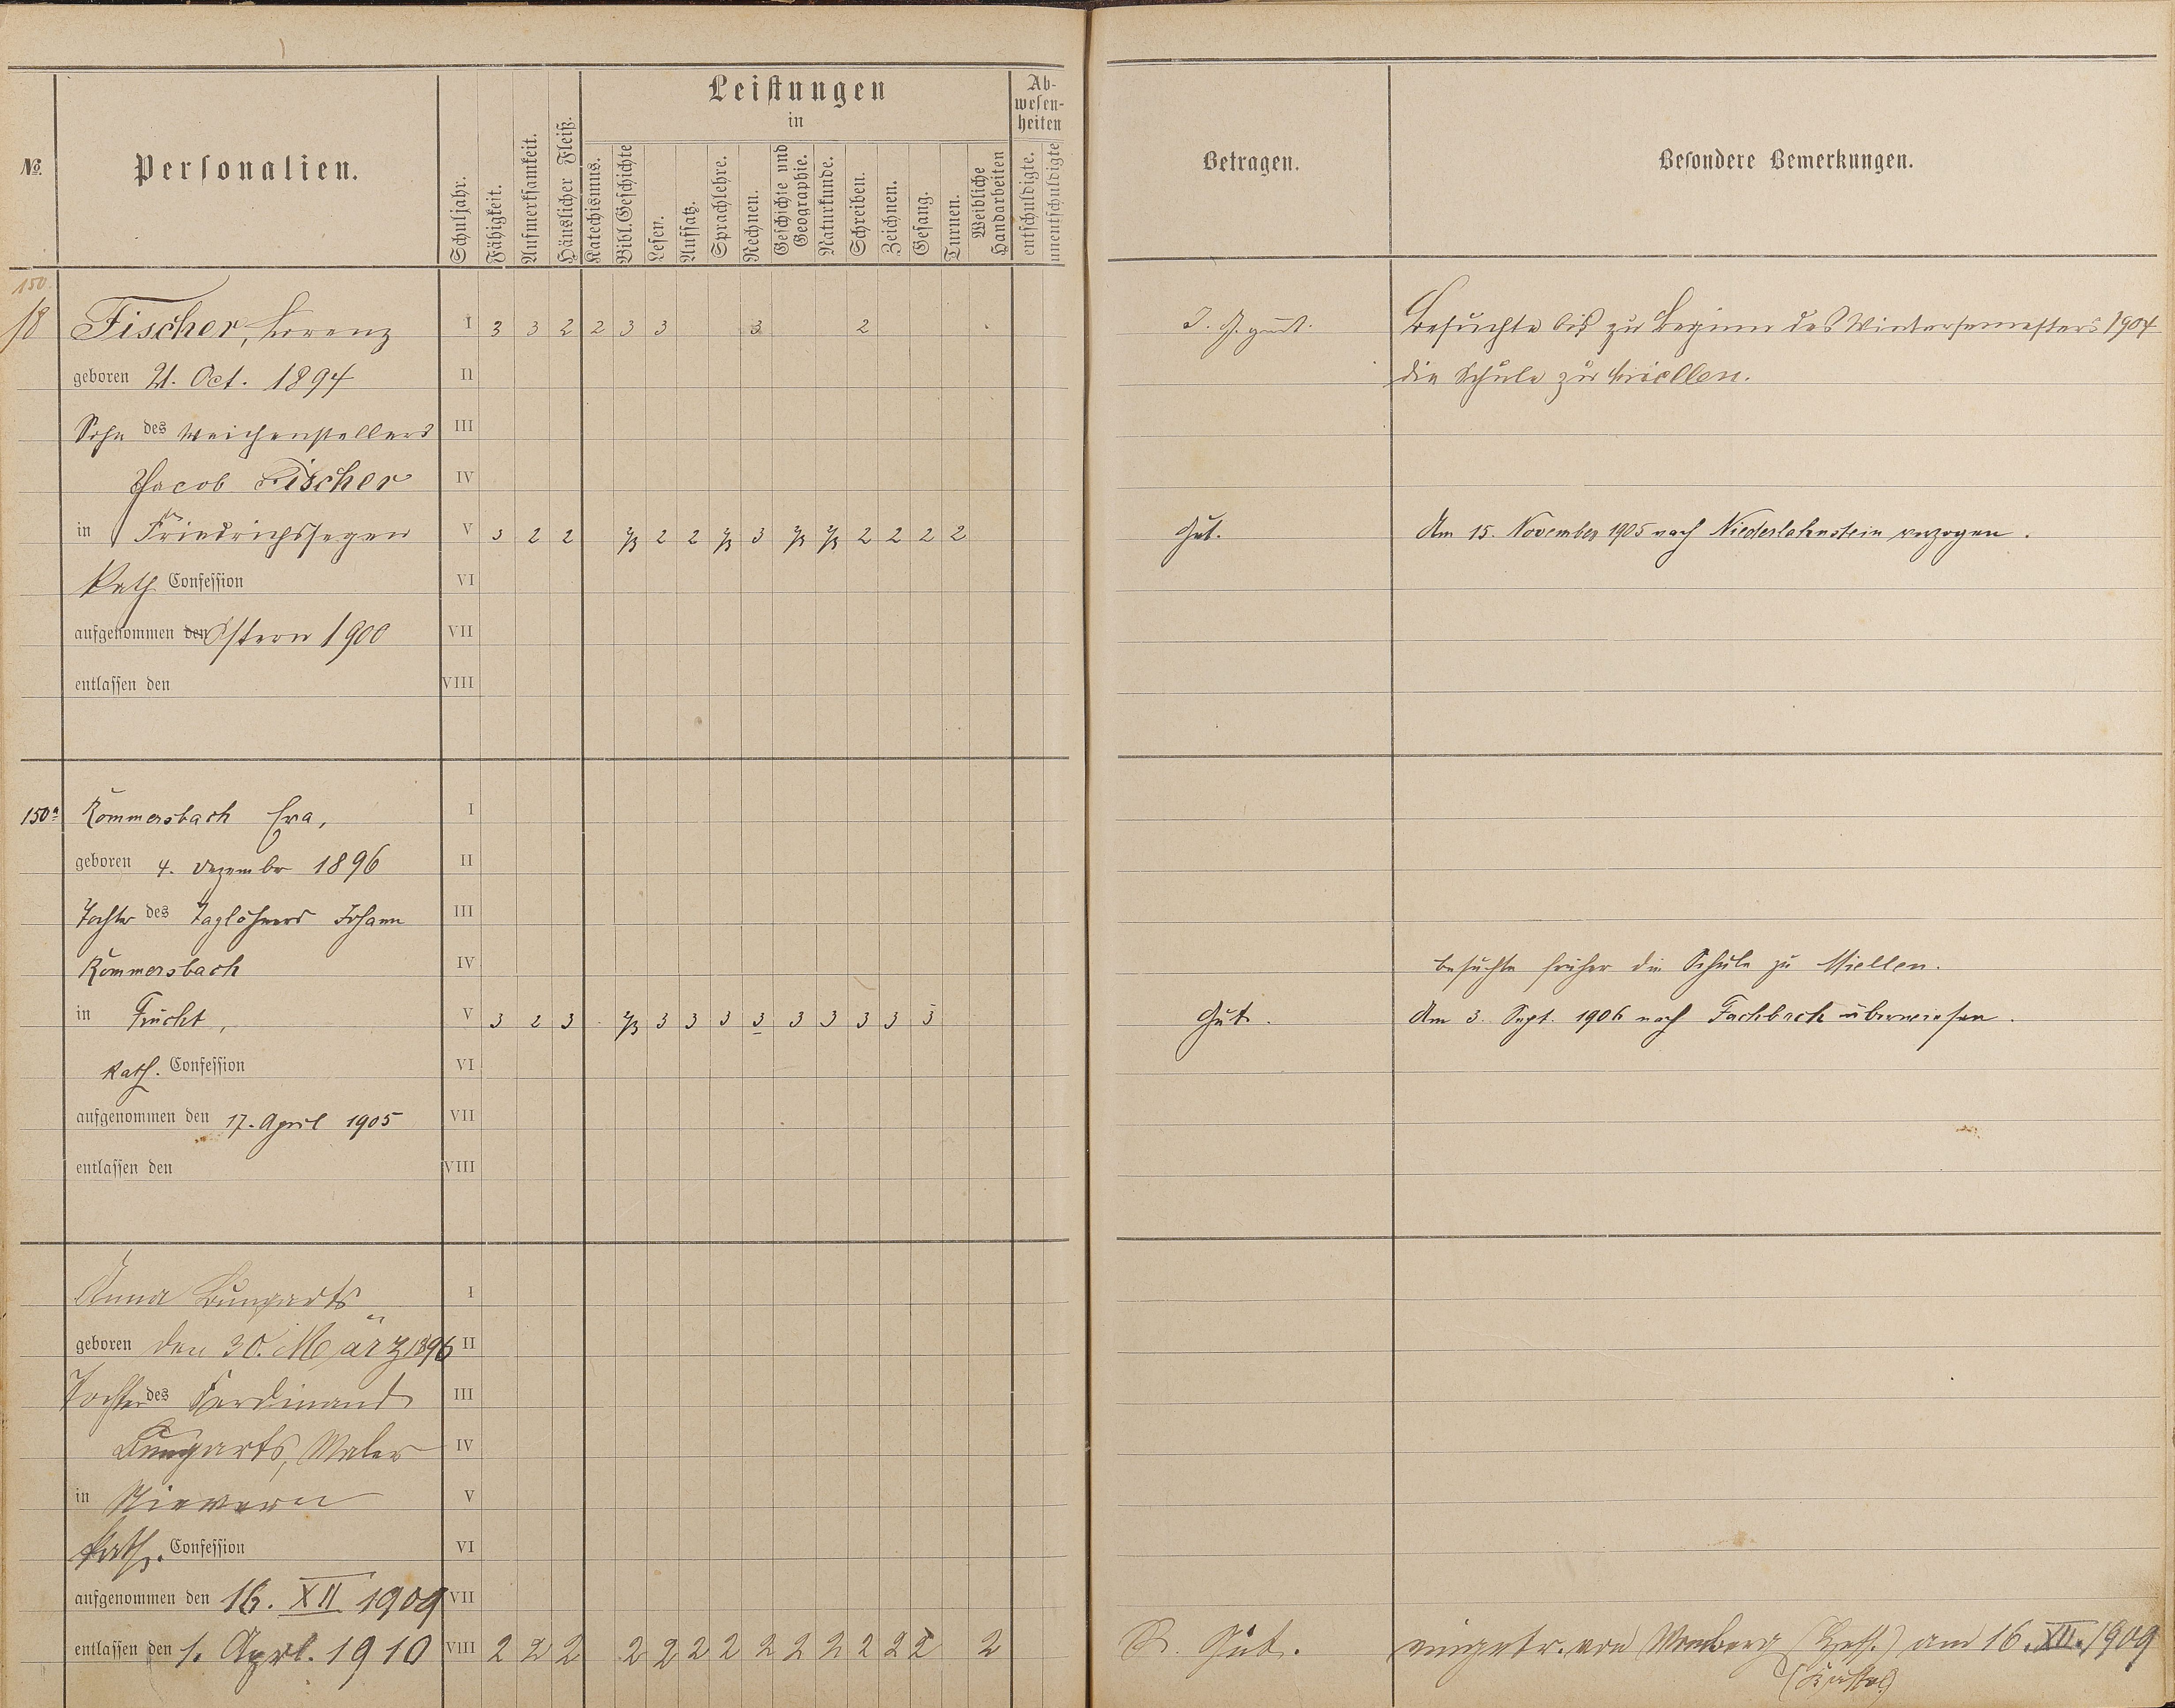 №
Personalien.
Schuljahr.
Fähigkeit.
Aufmerksamkeit.
Häuslicher Fleiß.
Leistungen
in
Katechismus.
Bibl. Geschichte
Lesen.
Aufsatz.
Sprachlehre.
Rechnen.
Geschichte und
Geographie.
Naturkunde.
Schreiben.
Zeichnen.
Gesang.
Turnen.
Weibliche
Handarbeiten
Ab-
wesen-
heiten
entschuldigte.
unentschuldigte
Betragen.
Besondere Bemerkungen.
150.
18 Fischer, Lorenz I 3 3 2 2 3 3 3 2 Besuchte bis zu Beginn des Wintersemesters 1904
geboren 21. Oct. 1894 II die Schule zu Miellen.
Sohn des Weichenstellers III
Jacob Fischer IV
in Friedrichssegen V 3 2 2 2/3 2 2 2/3 3 2/3 2/3 2 2 2 2 Gut. Am 15. November 1905 nach Niederlahnstein verzogen.
Kath Confession VI
aufgenommen den Ostern 1900 VII
entlassen den VIII
150a Römmersbach Eva, I
geboren 4. Dezember 1896 II
Tochter des Taglöhners Johann III
Römmersbach IV besuchte früher die Schule zu Miellen.
in Frücht, V 3 2 3 2/3 3 3 3 3 3 3 3 3 3 Gut. Am 3. Sept. 1906 nach Fachbach überwiesen.
kath. Confession VI
aufgenommen den 17. April 1905 VII
entlassen den VIII
Anna Bungarts I
geboren den 30. März 1896 II
Tochter des Ferdinand III
Bungarts, Maler IV
in Nievern V
kath. Confession VI
aufgenommen den 16. XII 1909 VII
entlassen den 1. Aprl. 1910 VIII 2 2 2 2 2 2 2 2 2 2 2 2 2 2 Gut. eingetr. von am 16. XII. 1909